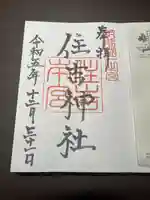 奉拝
住吉神社
令和五年十二月三十一日